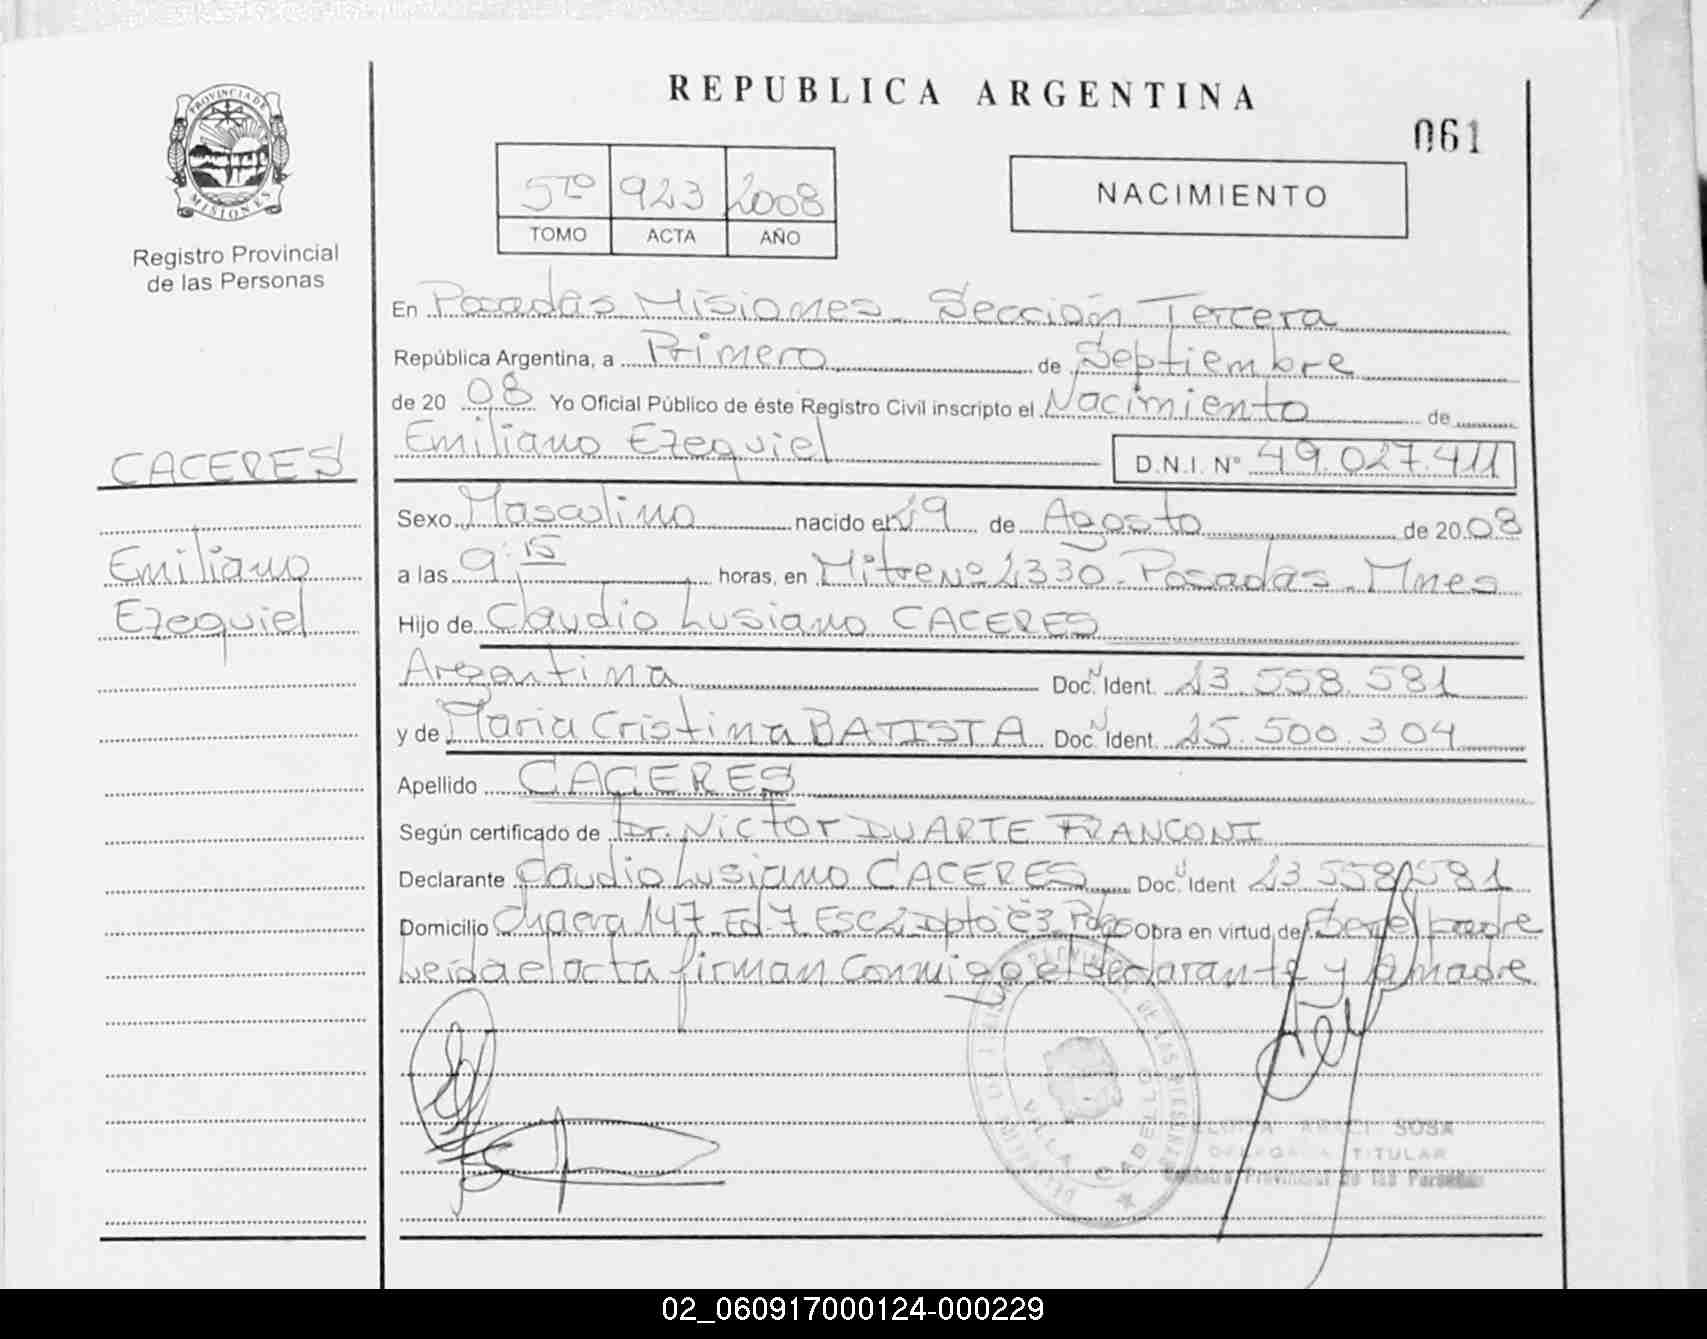 REPUBLICA ARGENTINA
061
PROVINCIA DE
MISIONES
Registro Provincial
de las Personas
5TO 923 2008
TOMO ACTA AÑO
NACIMIENTO
En Posadas Misiones - Sección Tercera
República Argentina, a Primero de Septiembre
de 20 08 Yo Oficial Público de éste Registro Civil inscripto el Nacimiento de
Emiliano Ezequiel D.N.I. Nº 49.027.411
CACERES
Emiliano
Ezequiel
Sexo Masculino nacido el 19 de Agosto de 20 08
a las 9:15 horas, en Mitre Nº 2330 - Posadas - Mnes
Hijo de Claudio Lusiano CACERES
Argentina Doc. Ident. 23.558.581
y de Maria Cristina BATISTA Doc. Ident. 25.500.304
Apellido CACERES
Según certificado de Dr. Victor DUARTE FRANCONI
Declarante Claudio Lusiano CACERES Doc. Ident 23.558.581
Domicilio Chacra 147 Ed. 7 Esc 2 Dpto C3 Pdas Obra en virtud de Ser el padre
Leida el acta firman Conmigo el declarante y la madre
VILLA CABELLO
SOSA
TITULAR
Registro Provincial de las Personas
02_060917000124-000229